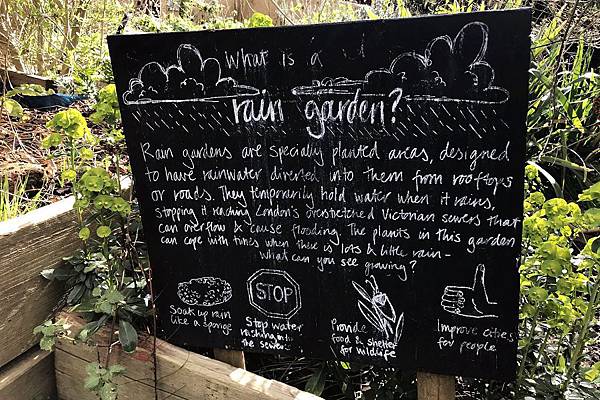 What is a
rain garden?
Rain gardens are specially planted areas, designed
to have rainwater diverted into them from rooftops
or roads. They temporarily hold water when it rains,
stopping it reaching London's overstretched Victorian sewers that
can overflow & cause flooding. The plants in this garden
can cope with times when there is lots & little rain -
what can you see growing?
Soak up rain
like a sponge
STOP
Stop water
rushing into
the sewer
Provide
food & shelter
for wildlife
Improve cities
for people